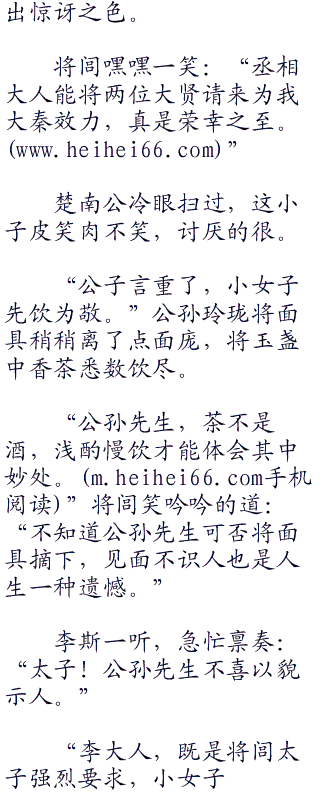 出惊讶之色。
将闾嘿嘿一笑：“丞相
大人能将两位大贤请来为我
大秦效力，真是荣幸之至。
(www.heihei66.com)”
楚南公冷眼扫过，这小
子皮笑肉不笑，讨厌的很。
“公子言重了，小女子
先饮为敬。”公孙玲珑将面
具稍稍离了点面庞，将玉盏
中香茶悉数饮尽。
“公孙先生，茶不是
酒，浅酌慢饮才能体会其中
妙处。(m.heihei66.com手机
阅读)”将闾笑吟吟的道：
“不知道公孙先生可否将面
具摘下，见面不识人也是人
生一种遗憾。”
李斯一听，急忙禀奏：
“太子！公孙先生不喜以貌
示人。”
“李大人，既是将闾太
子强烈要求，小女子